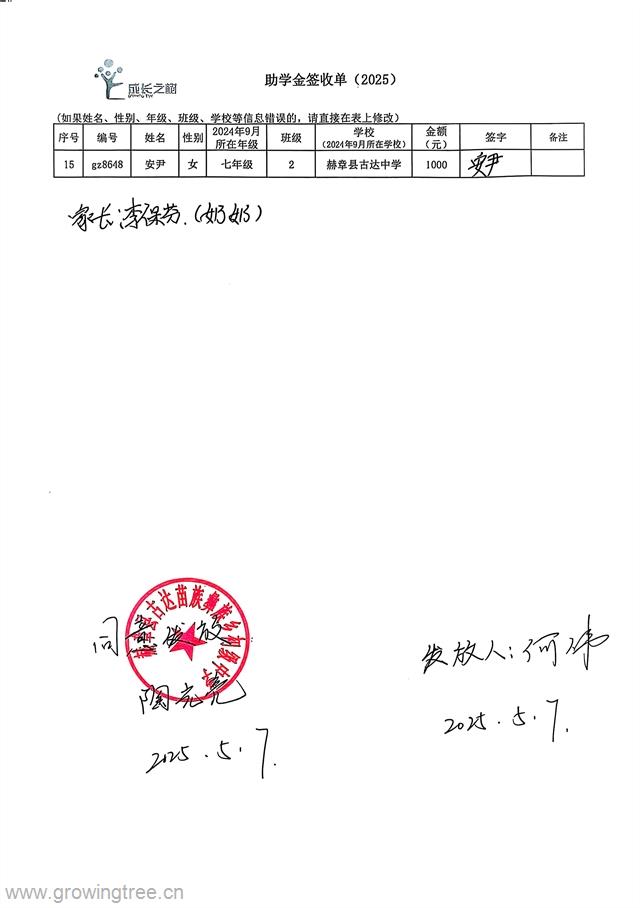 成长之树
Growing Tree
助学金签收单（2025）
(如果姓名、性别、年级、班级、学校等信息错误的，请直接在表上修改)
序号 编号 姓名 性别 2024年9月所在年级 班级 学校(2024年9月所在学校) 金额(元) 签字 备注
15 gz8648 安尹 女 七年级 2 赫章县古达中学 1000 安尹
家长:李保芬.(奶奶)
赫章县古达苗族彝族乡初级中学
同意发放
陶光亮
2025.5.7.
发放人:何伟
2025.5.7.
www.growingtree.cn